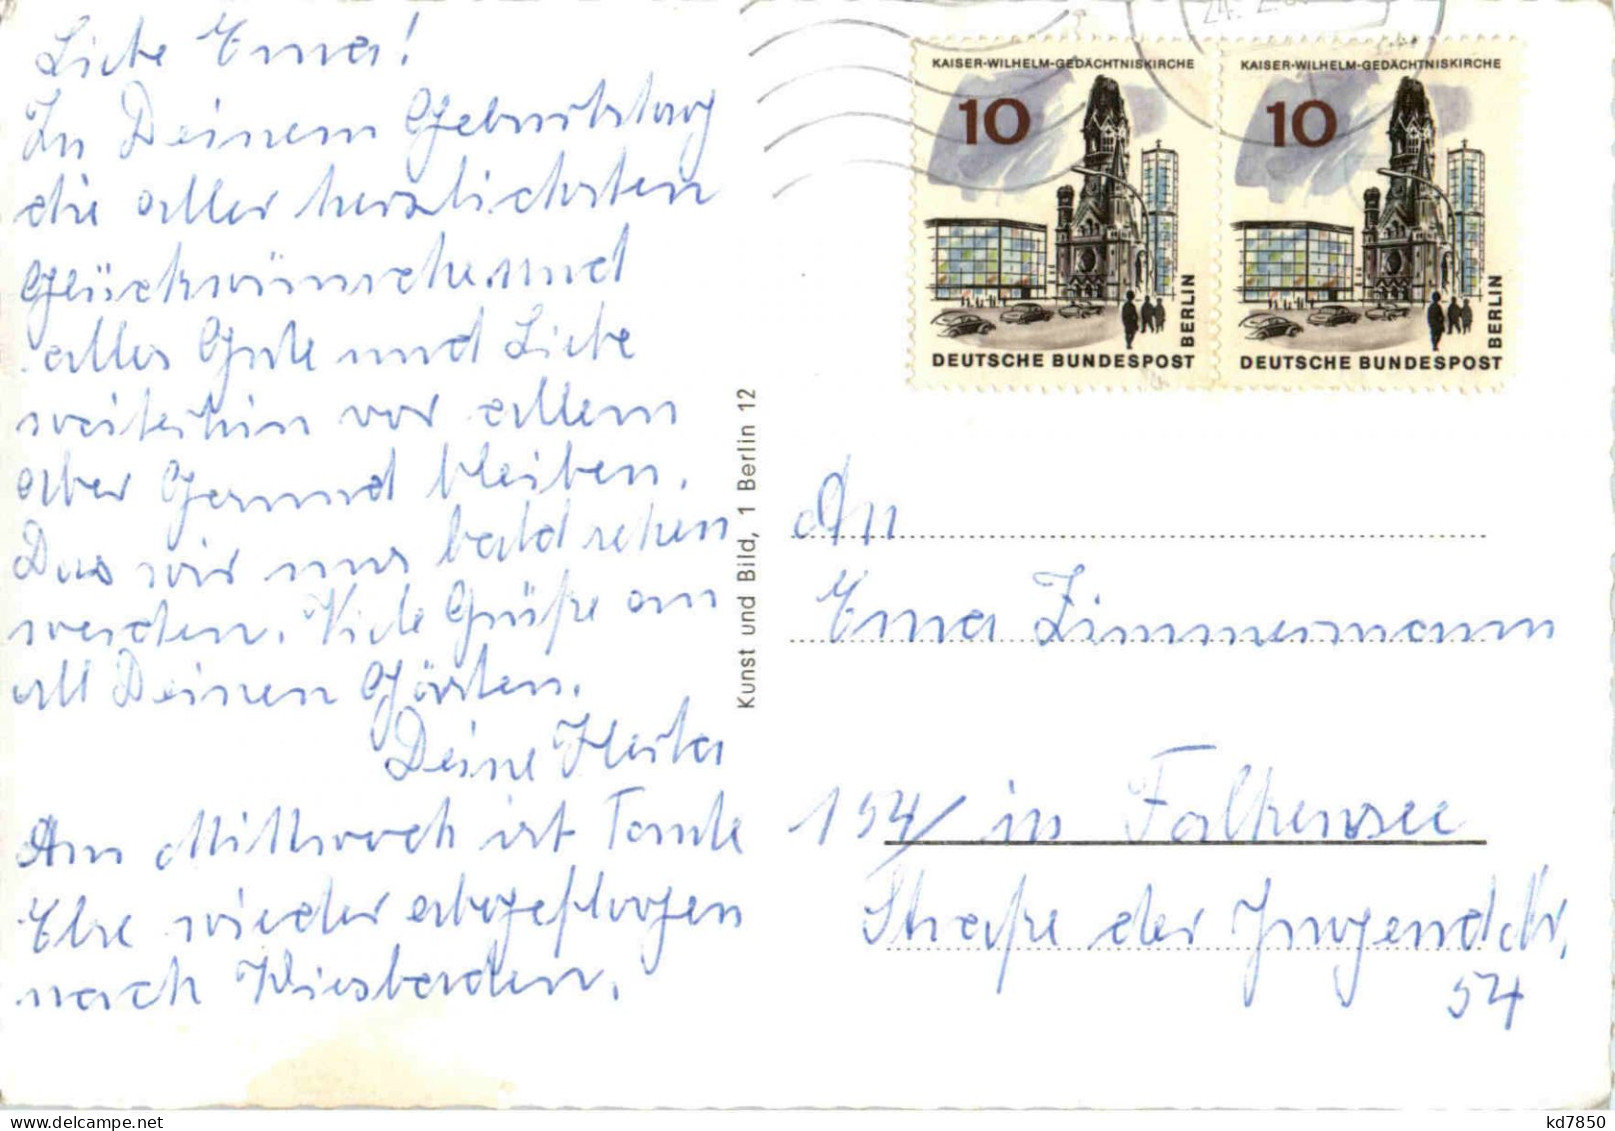 Liebe Erna!
Zu Deinem Geburtstag
die aller herzlichsten
Glückwünsche und
alles Gute und Liebe
weiterhin vor allem
aber Gesund bleiben.
Das wir uns bald sehen
werden. Viele Grüße an
all Deinen Gästen.
Deine Herta
Am Mittwoch ist Tante
Else wieder abgeflogen
nach Wiesbaden.
Kunst und Bild, 1 Berlin 12
KAISER-WILHELM-GEDÄCHTNISKIRCHE
10
BERLIN
DEUTSCHE BUNDESPOST
KAISER-WILHELM-GEDÄCHTNISKIRCHE
10
BERLIN
DEUTSCHE BUNDESPOST
An
Erna Zimmermann
154/ in Falkensee
Straße der Jugend
54
kd7850